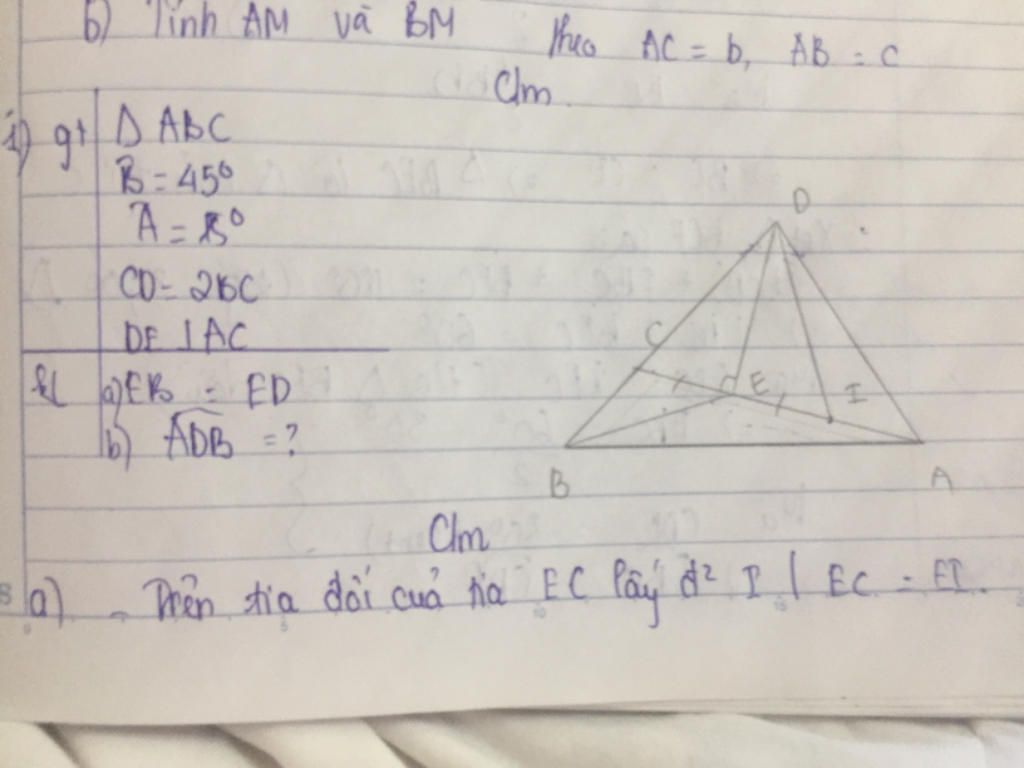 b) Tính AM và BM theo AC = b, AB = c
Clm
1) gt Δ ABC
B = 45°
Â = 15°
CD = 2BC
DE ⊥ AC
kl a) EB = ED
b) ADB = ?
D
C
E
I
B
A
Clm
a) - Trên tia đối của tia EC lấy đ² I | EC = EI.